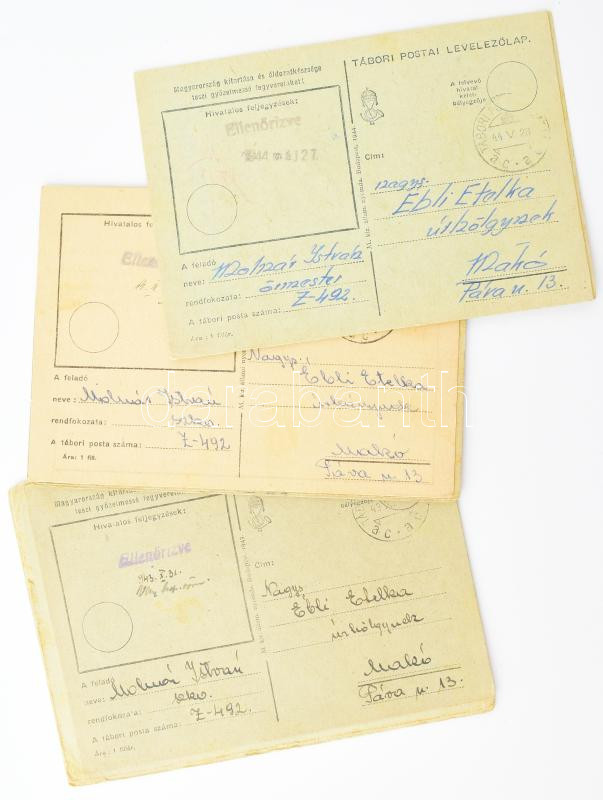 Magyarország kitartása és áldozatkészsége
teszi győzelmessé fegyvereinket!
TÁBORI POSTAI LEVELEZŐLAP.
Hivatalos feljegyzések:
Ellenőrizve
A felvevő
hivatal
keleti
bélyegzője
TÁBORI
44 V 28
M. kir. állam. nyomda, Budapest, 1944.
Cím:
nagys.
Ebli Etelka
úrhölgynek
Makó
Páva u. 13.
A feladó
neve: Molnár István
rendfokozata: őrmester
A tábori posta száma: Z-492.
Ára: 1 fillér.
Hivatalos
A feladó
neve: Molnár István
rendfokozata:
A tábori posta száma: Z-492
Ára: 1 fill.
M. kir. állam
Nagys.
Ebli Etelka
Makó
Páva u. 13
darabanth
Magyarország
teszi győzelmessé
Hivatalos feljegyzések:
Ellenőrizve
943. X. 31.
M. kir. állam. nyomda, Budapest, 1943.
Cím:
Nagys.
Ebli Etelka
úrhölgynek
Makó
Páva u. 13.
A feladó
neve: Molnár István
rendfokozata:
A tábori posta száma: Z-492.
Ára: 1 fillér.